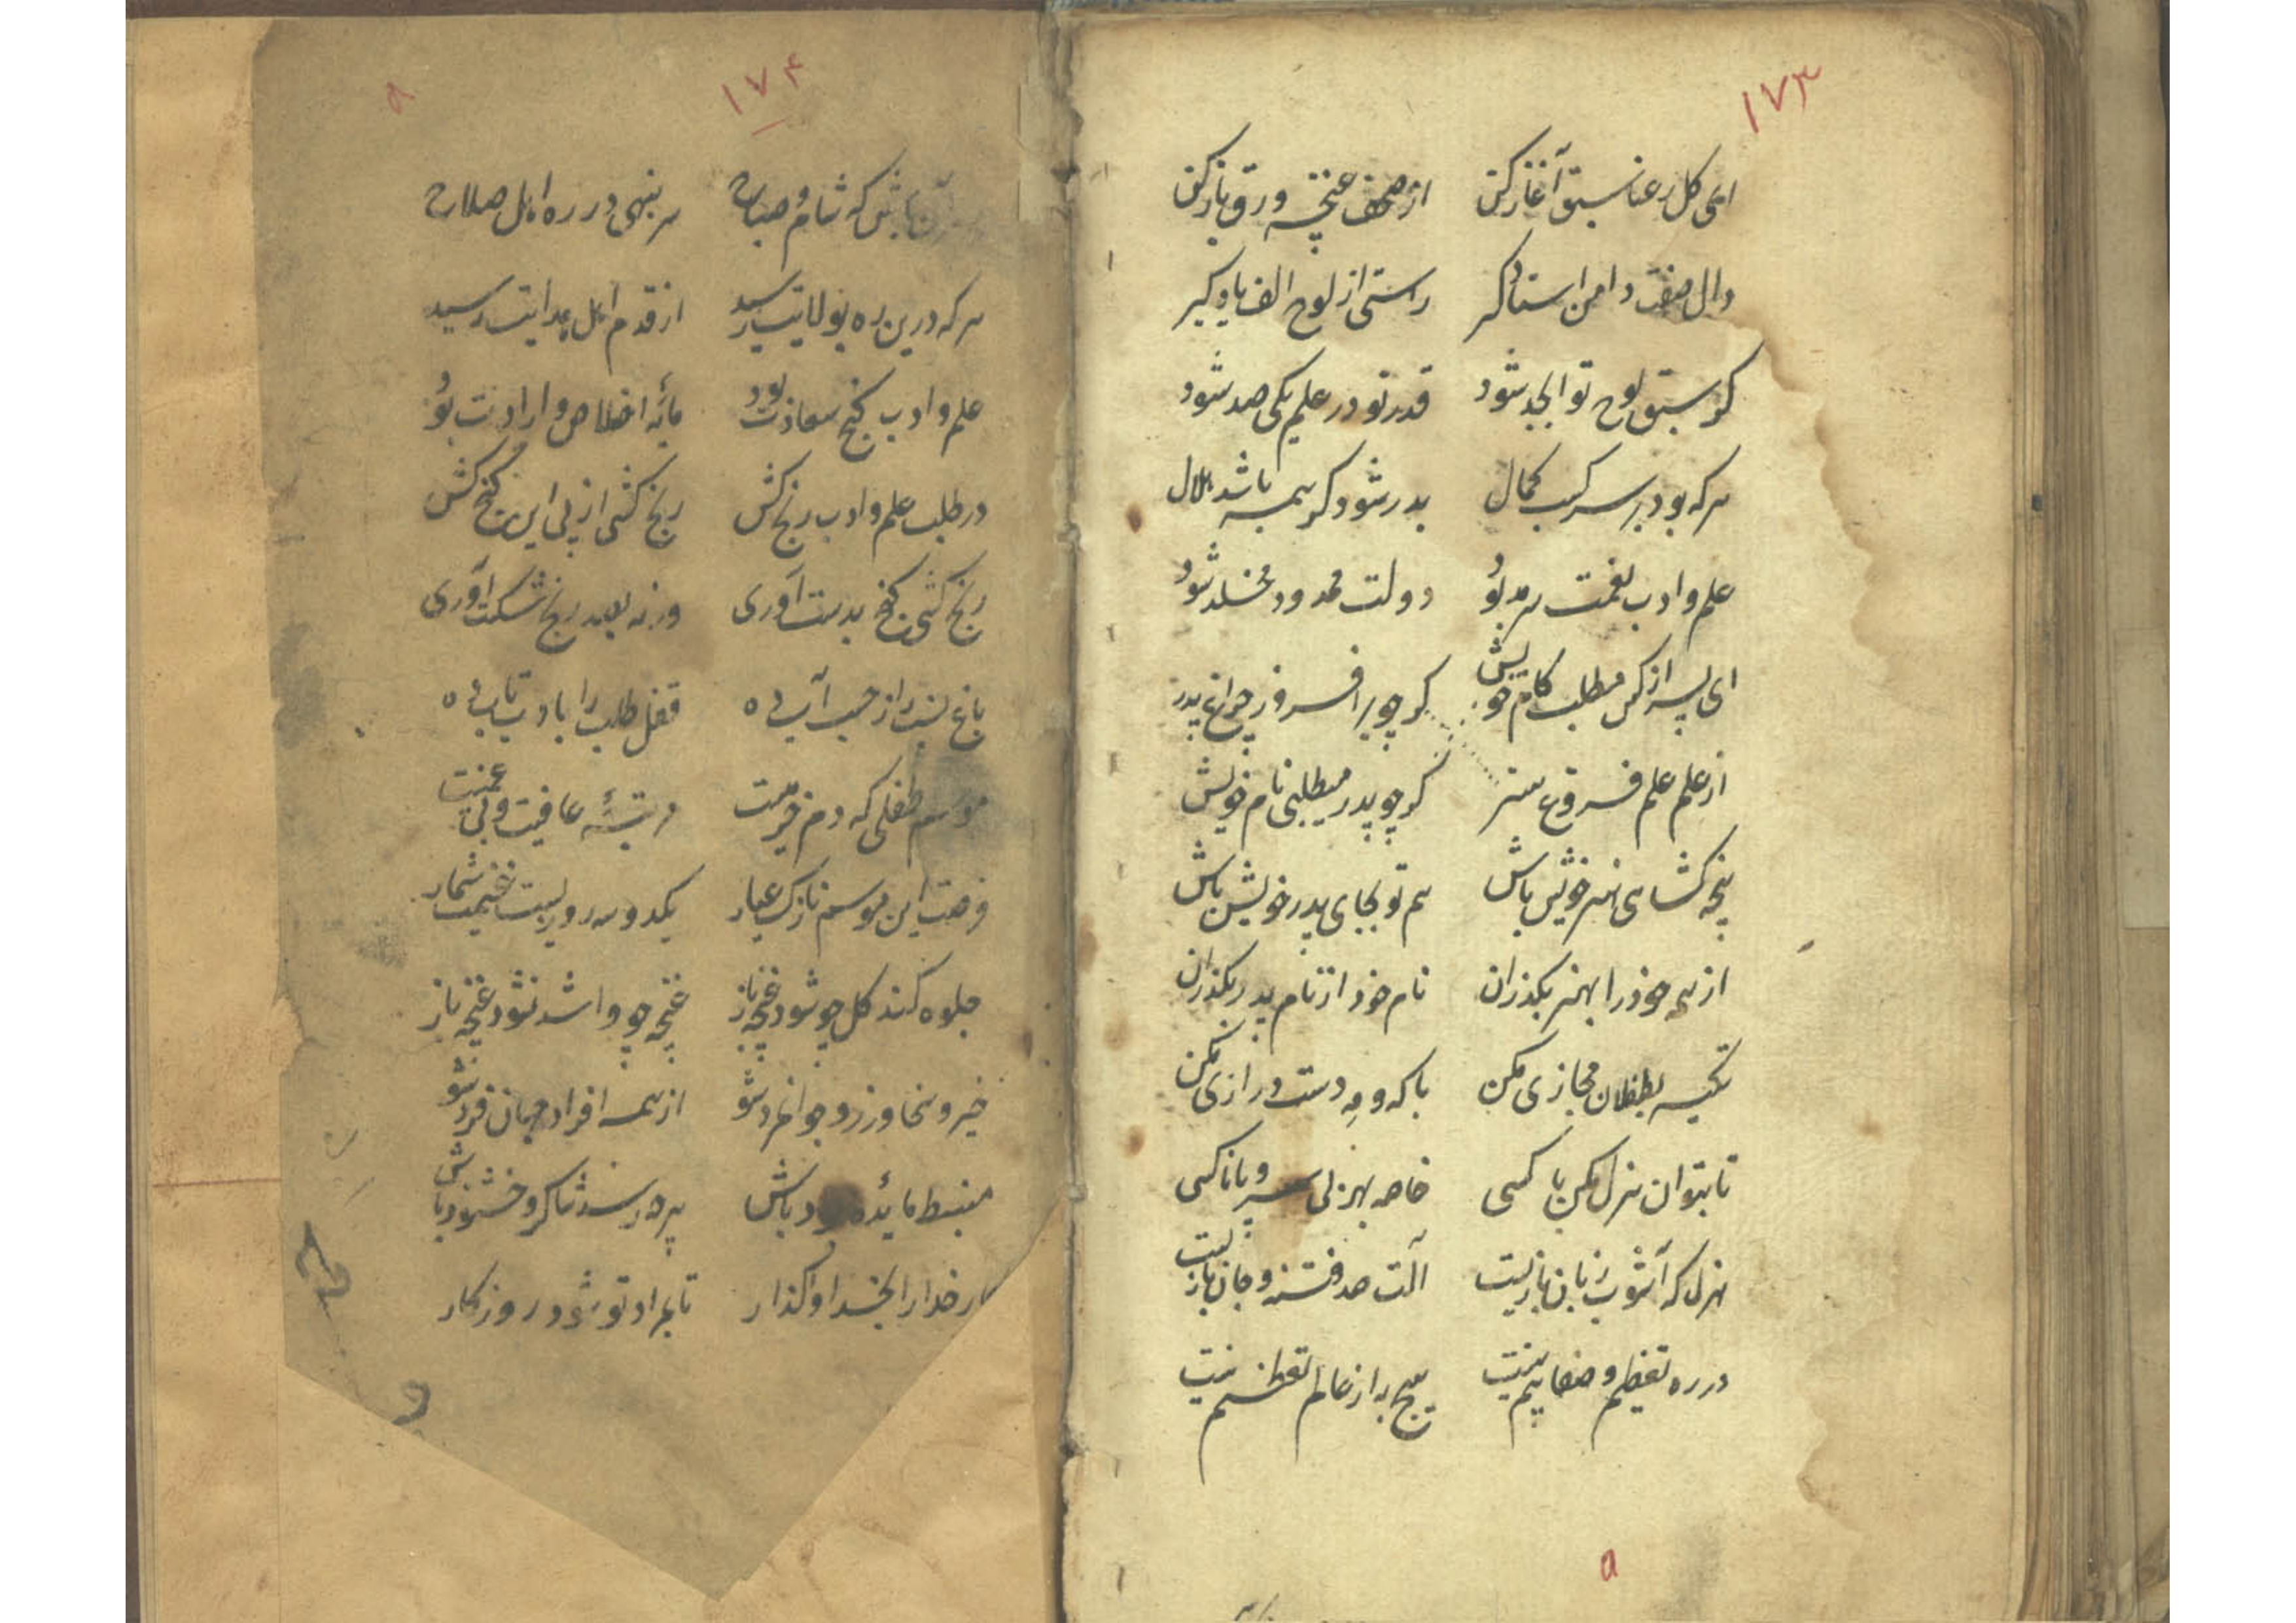 ۱۷۳
ای کل رعنا سبق آغاز کن از صحف غنچه ورق باز کن
دال صفت دامن استاد کیر راستی از لوح الف یاد کیر
کر سبق لوح تو ابجد شود قدر تو در علم یکی صد شود
هر که بود بر سر کسب کمال بدر شود کر همه باشد هلال
علم و ادب نعمت سرمد بود دولت محدود مخلد شود
ای پسر از کس مطلب کام خویش کر چو پدر افسروز چراغ پدر
از علم علم فروغ هنر کر چو پدر میطلبی نام خویش
پنجه کشای هنر خویش باش هم تو بجای پدر خویش باش
از همه خود را بهنر بکذران نام خود از نام پدر بکذران
تکیه بطفلان مجازی مکن با که و مه دست درازی مکن
تا بتوان هزل مکن با کسی خاصه بهزلی و با ناکسی
هزل که آشوب زبان بازیست آلت صد فتنه و جان بازیست
در ره تعظیم و صفا بیم نیست هیچ به از عالم تعظیم نیست
۱۷۴
باش که شام و صباح سر بنهی در ره اهل صلاح
هر که درین ره بولایت رسید از قدم اهل هدایت رسید
علم و ادب کنج سعادت بود مایهٔ اخلاص و ارادت بود
در طلب علم و ادب رنج کش رنج کشی از پی این کنج کش
رنج کشی کنج بدست آوری ورنه بصد رنج شکست آوری
باغ نسب را ز حسب آب ده قفل طلب را بادب تاب ده
موسم طفلی که دم خرمیست رتبهٔ عافیت و بی غمیست
فرصت این موسم نازک عیار یکدو سه روزیست غنیمت شمار
جلوه کند کل چو شود غنچه باز غنچه چو وا شد نشود غنچه باز
خیر و سخا ورز و جوانمرد شو از همه افراد جهان فرد شو
منبسط مائده جود باش هرچه رسد شاکر و خشنود باش
کار خدا را بخدا واکذار تا بمراد تو شود روزکار